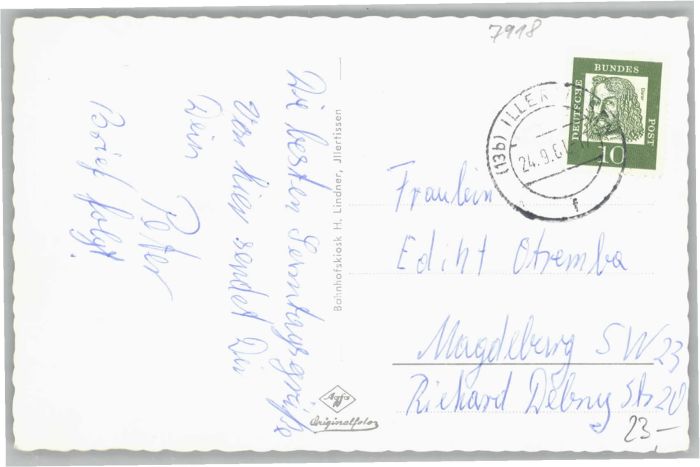 7918
DEUTSCHE BUNDESPOST
Dürer
10
(13b) ILLERTISSEN
24.9.61
f
Die besten Sonntagsgrüße
von hier sendet Dir
Dein
Peter
Brief folgt.
Bahnhofskiosk H. Lindner, Jllertissen
Agfa
Originalfoto
Fraulein
Ediht Otremba
Magdeburg SW 23
Richard Dębny Str 20
23-